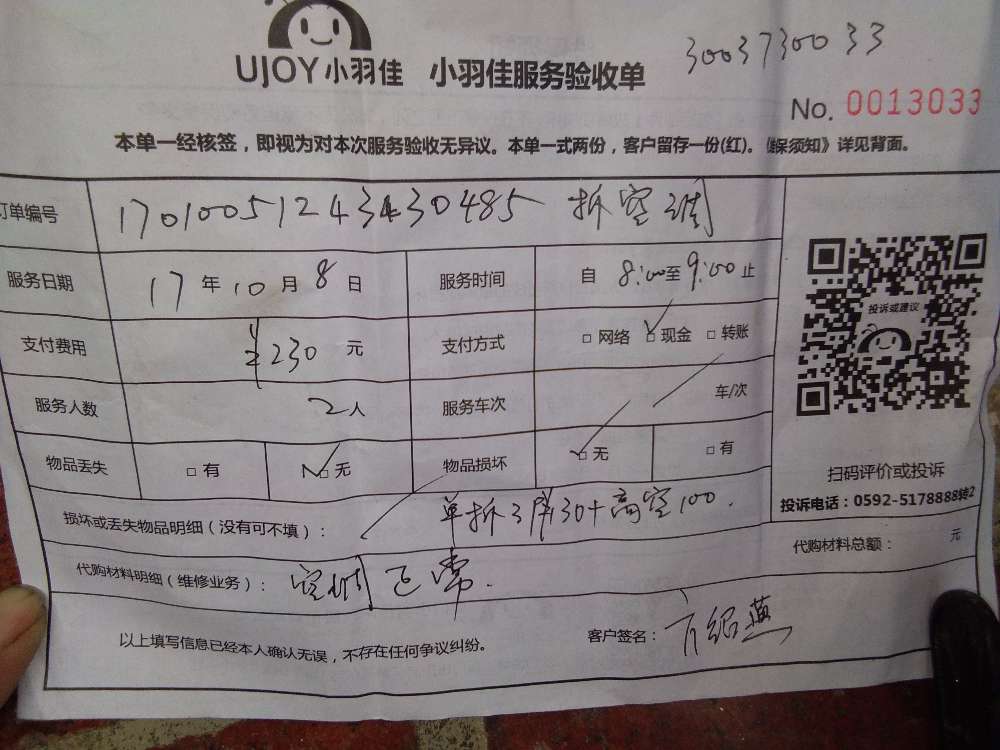 3003730033
UJOY小羽佳 小羽佳服务验收单
No. 0013033
本单一经核签，即视为对本次服务验收无异议。本单一式两份，客户留存一份(红)。《保须知》详见背面。
订单编号 17010051243430485 拆空调
服务日期 17年10月8日 服务时间 自8:00至9:00止
投诉或建议
支付费用 230元 支付方式 □网络 □现金 □转账
服务人数 2人 服务车次 车/次
物品丢失 □有 □无 物品损坏 □无 □有
扫码评价或投诉
投诉电话：0592-5178888转2
损坏或丢失物品明细（没有可不填）： 单拆 130+高空100.
代购材料总额： 元
代购材料明细（维修业务）： 空调正常.
以上填写信息已经本人确认无误，不存在任何争议纠纷。 客户签名：